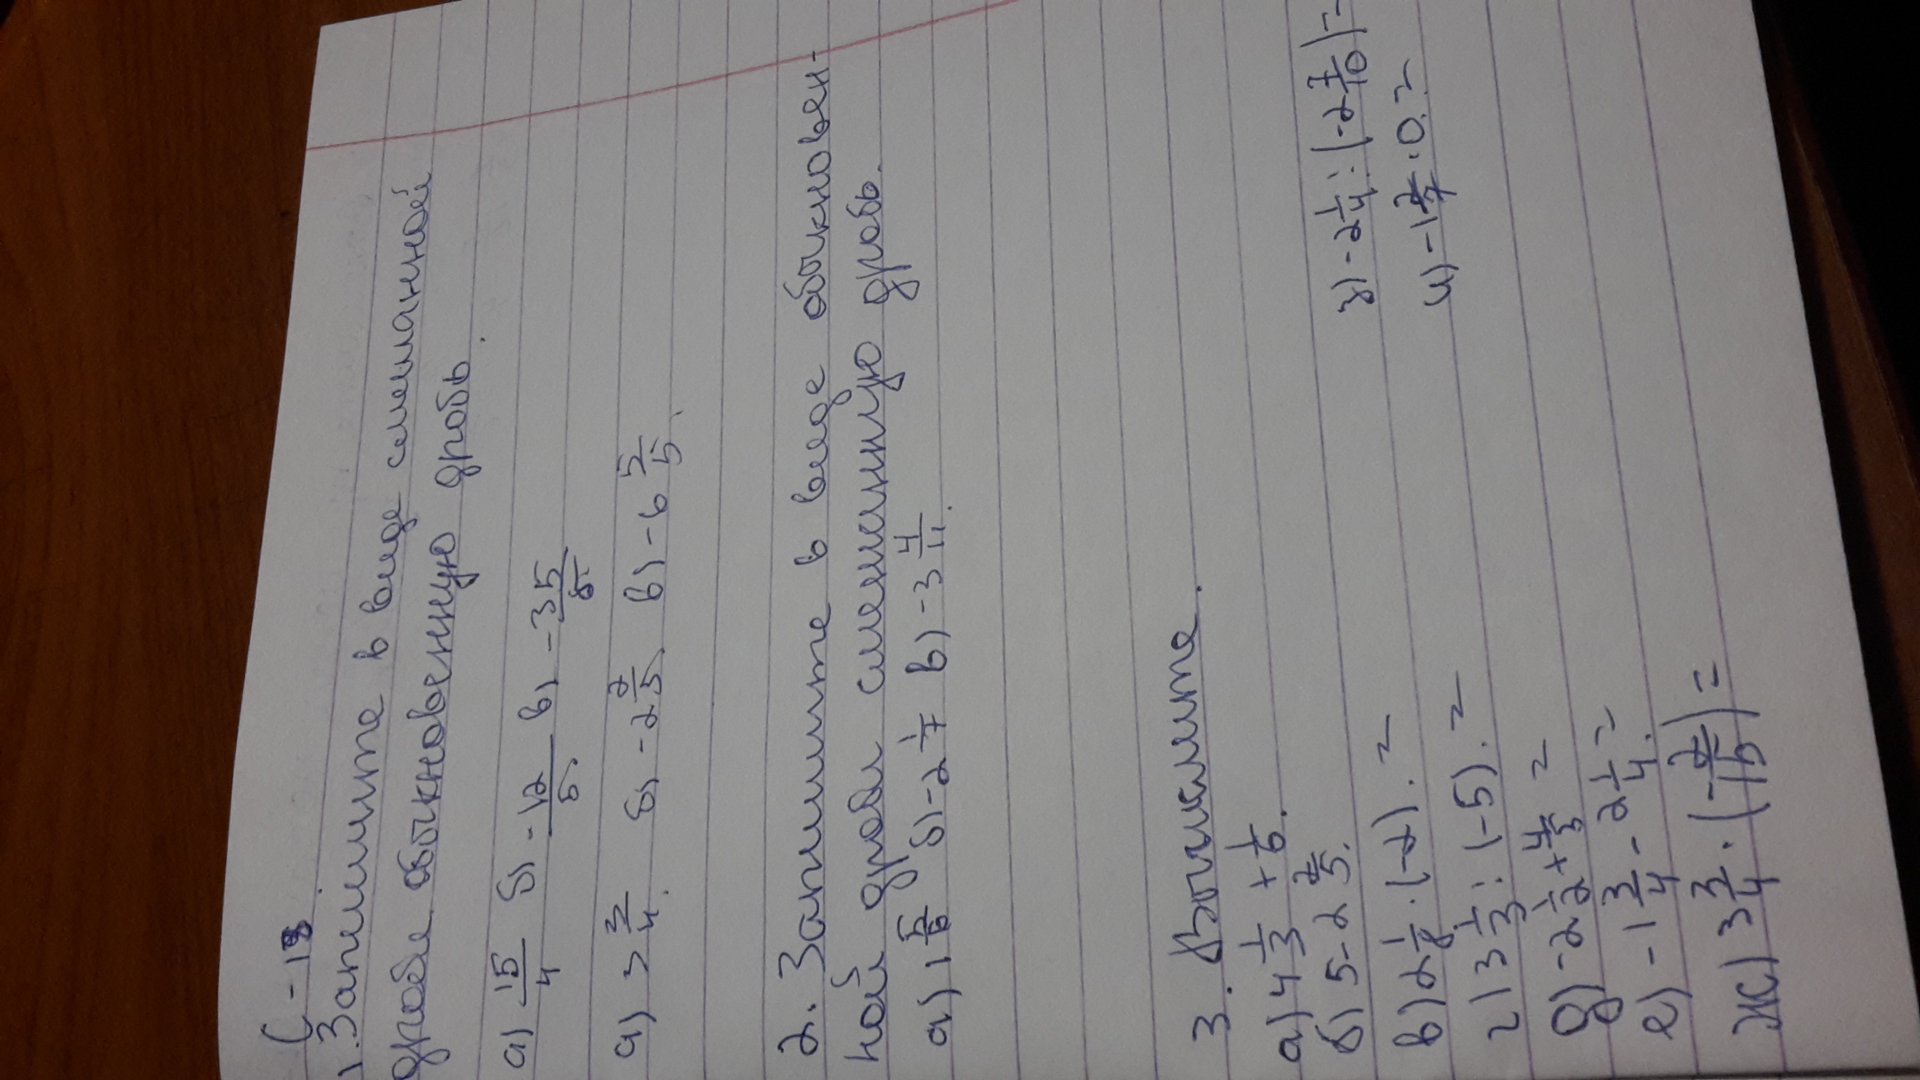 С-18
1. Запишите в виде смешанной
дроби обыкновенную дробь.
а) 15/4 б) -12/5, в) -35/8
а) 3 3/4. б) -2 2/5, в) -6 5/5.
2. Запишите в виде обыкновен-
ной дроби смешанную дробь.
а) 1 5/6 б) -2 1/7 в) -3 4/11.
3. Вычислите.
а) 4 1/3 + 1/6.
б) 5 - 2 2/5.
в) 2 1/8 · (-2). =
г) 3 1/3 : (-5). =
д) -2 1/2 + 4/3 =
е) -1 3/4 - 2 1/4. =
ж) 3 3/4 · (-2/15) =
з) -2 1/4 : (-2 7/10) =
и) -1 2/7 · 0. =